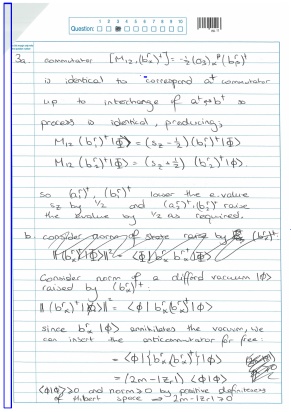 Question: 1 2 3 4 5 6 7 8 9 10
3a. commutator [M₁₂, (bᵣα)†] = -½(σ₃)α^β (bᵣβ)†
is identical to correspond a† commutator
up to interchange of a† ↔ b† so
process is identical, producing;
M₁₂ (b₁ʳ)†|Φ⟩ = (s_z - ½) (b₁ʳ)†|Φ⟩
M₁₂ (b₂ʳ)†|Φ⟩ = (s_z + ½) (b₂ʳ)†|Φ⟩.
so (a₁ʳ)†, (b₁ʳ)† lower the e.value
s_z by 1/2 and (a₂ʳ)†, (b₂ʳ)† raise
the evalue by 1/2 as required.
b. consider norm of state raise by
Consider norm of a differd vacuum |Φ⟩
raised by (bαʳ)†:
||(bαʳ)†|Φ⟩||² = ⟨Φ| bαʳ(bαʳ)† |Φ⟩
since bαʳ |Φ⟩ annihilates the vacuum, we
can insert the anticommutator for free:
= ⟨Φ| {bαʳ, (bαʳ)†} |Φ⟩
= (2m-|Zr|) ⟨Φ|Φ⟩
⟨Φ|Φ⟩ ≥ 0 and norm ≥ 0 by positive definiteness
of Hilbert space ⟹ 2m-|Zr| ≥ 0